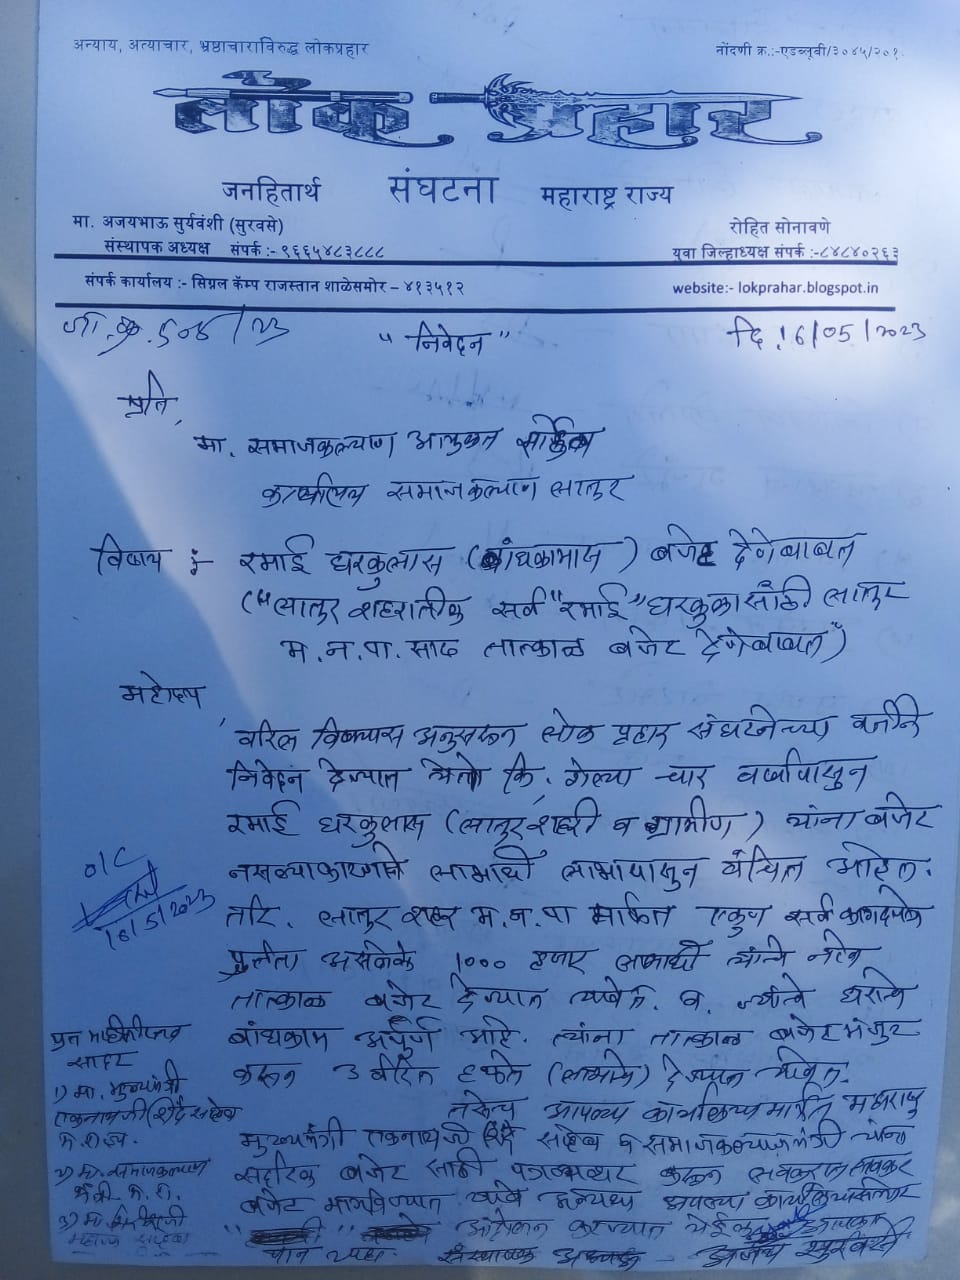 अन्याय, अत्याचार, भ्रष्टाचाराविरुद्ध लोकप्रहार
नोंदणी क्र.:-एडब्लूवी/३०४५/२०१
लोक प्रहार
जनहितार्थ संघटना महाराष्ट्र राज्य
मा. अजयभाऊ सुर्यवंशी (सुरवसे)
रोहित सोनावणे
संस्थापक अध्यक्ष संपर्क :- ९६६५४८३८८८
युवा जिल्हाध्यक्ष संपर्क :-८४८४०२६३
संपर्क कार्यालय :- सिग्नल कॅम्प राजस्तान शाळेसमोर – ४१३५१२
website:- lokprahar.blogspot.in
जा.क्र. /23
"निवेदन"
दि 16/05/2023
प्रति,
मा. समाजकल्याण आयुक्त साहेब
कार्यालय समाजकल्याण लातुर
विषय :- रमाई घरकुलास (बांधकामास) बजेट देणेबाबत
("लातुर शहरातील सर्व "रमाई" घरकुलासाठी लातुर
म.न.पा.साठ तात्काळ बजेट देणेबाबत")
महोदय,
वरिल विषयास अनुसरून लोक प्रहार संघटनेच्या वतीने
निवेदन देण्यात येते कि, गेल्या चार वर्षापासुन
रमाई घरकुलास (लातुर शहरी व ग्रामीण) यांना बजेट
नसल्याकारणाने लाभार्थी लाभापासुन वंचित आहेत.
तरि. लातुर शहर म.न.पा मार्फत एकुण सर्व कागदपत्रे
पुर्तता असलेले 1000 हजार लाभार्थी त्यांचे
तात्काळ बजेट देण्यात यावेत. व ज्यांचे घराचे
बांधकाम अर्पुण आहे. त्यांना तात्काळ बजेट मंजुर
करून उर्वरित हफ्ते (लाभार्थी) देण्यात यावेत.
तसेच आपल्या कार्यालया मार्फत महाराष्ट्र
मुख्यमंत्री एकनाथजी शिंदे साहेब व समाजकल्याणमंत्री यांना
बजेट साठी पत्रव्यवहार करून लवकरात लवकर
बजेट मागविण्यात यावे अन्यथा आपल्या कार्यालयासमोर
आंदोलन करण्यात येईल
संस्थापक अध्यक्ष अजय सुर्यवंशी
O/C
16/5/2023
प्रत माहितीस्तव
सादर
1) मा. मुख्यमंत्री
एकनाथजी शिंदे साहेब
म.राज्य.
2) मा. समाजकल्याण
मंत्री म.रा.
3) मा